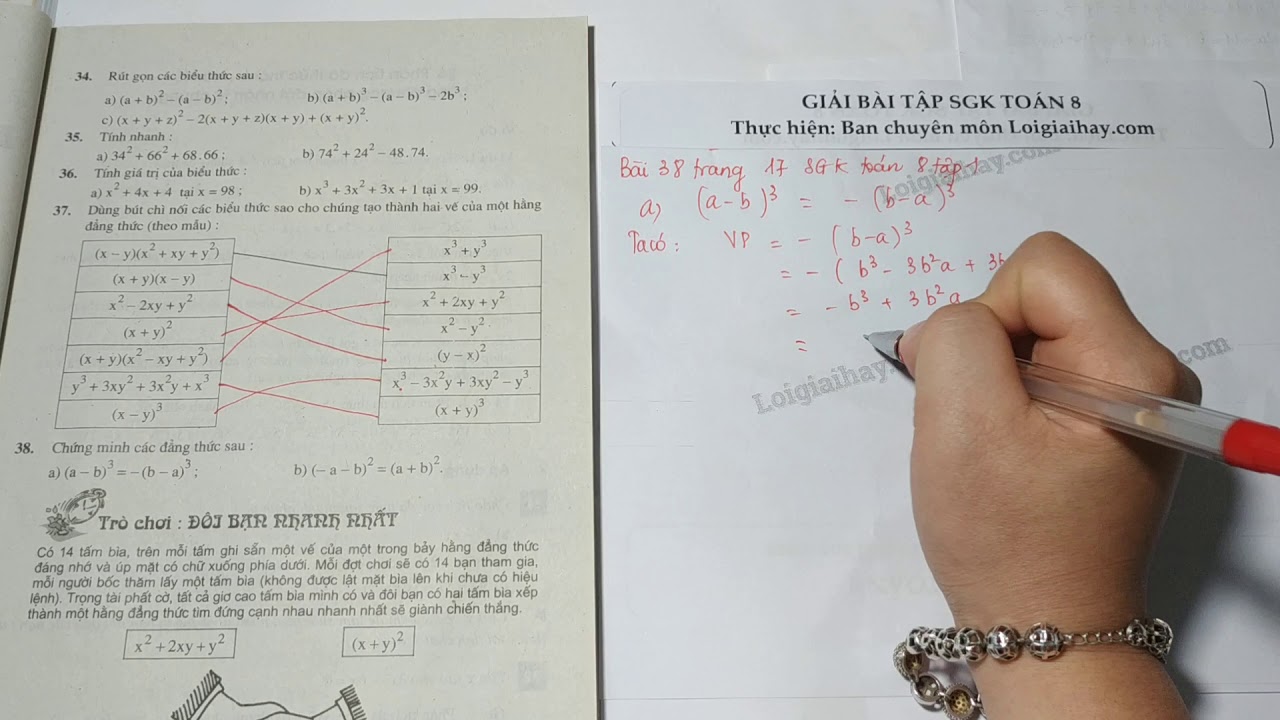 34. Rút gọn các biểu thức sau :
a) (a + b)² – (a – b)² ; b) (a + b)³ – (a – b)³ – 2b³ ;
c) (x + y + z)² – 2(x + y + z)(x + y) + (x + y)².
35. Tính nhanh :
a) 34² + 66² + 68.66 ; b) 74² + 24² – 48.74.
36. Tính giá trị của biểu thức :
a) x² + 4x + 4 tại x = 98 ; b) x³ + 3x² + 3x + 1 tại x = 99.
37. Dùng bút chì nối các biểu thức sao cho chúng tạo thành hai vế của một hằng
đẳng thức (theo mẫu) :
(x – y)(x² + xy + y²)
(x + y)(x – y)
x² – 2xy + y²
(x + y)²
(x + y)(x² – xy + y²)
y³ + 3xy² + 3x²y + x³
(x – y)³
x³ + y³
x³ – y³
x² + 2xy + y²
x² – y²
(y – x)²
x³ – 3x²y + 3xy² – y³
(x + y)³
38. Chứng minh các đẳng thức sau :
a) (a – b)³ = –(b – a)³ ; b) (– a – b)² = (a + b)².
Trò chơi : ĐÔI BẠN NHANH NHẤT
Có 14 tấm bìa, trên mỗi tấm ghi sẵn một vế của một trong bảy hằng đẳng thức
đáng nhớ và úp mặt có chữ xuống phía dưới. Mỗi đợt chơi sẽ có 14 bạn tham gia,
mỗi người bốc thăm lấy một tấm bìa (không được lật mặt bìa lên khi chưa có hiệu
lệnh). Trọng tài phất cờ, tất cả giơ cao tấm bìa mình có và đôi bạn có hai tấm bìa xếp
thành một hằng đẳng thức tìm đứng cạnh nhau nhanh nhất sẽ giành chiến thắng.
x² + 2xy + y² (x + y)²
GIẢI BÀI TẬP SGK TOÁN 8
Thực hiện: Ban chuyên môn Loigiaihay.com
Bài 38 trang 17 SGK toán 8 tập 1
a) (a - b)³ = - (b - a)³
Ta có : VP = - (b - a)³
= - ( b³ - 3b²a + 3b
= - b³ + 3b²a
=
Loigiaihay.com
Loigiaihay.com